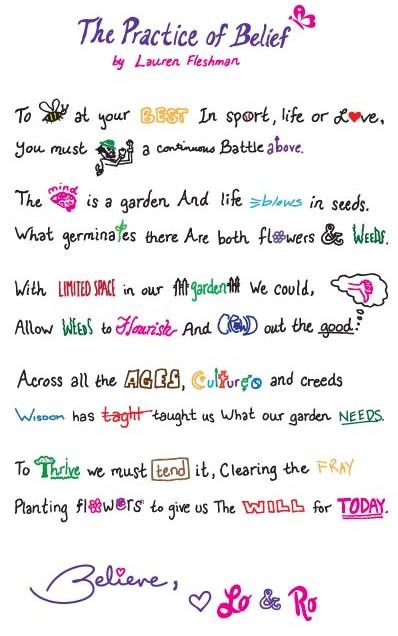 The Practice of Belief
by Lauren Fleshman
To at your BEST In sport, life or Love,
You must a continuous Battle above.
The mind is a garden And life blows in seeds.
What germinates there Are both flowers & WEEDS.
With LIMITED SPACE in our garden We could,
Allow WEEDS to Flourish And CROWD out the good...
Across all the AGES, Cultures and creeds
Wisdom has taght taught us What our garden NEEDS.
To Thrive we must tend it, Clearing the FRAY
Planting flowers to give us The WILL for TODAY.
Believe,
Lo & Ro